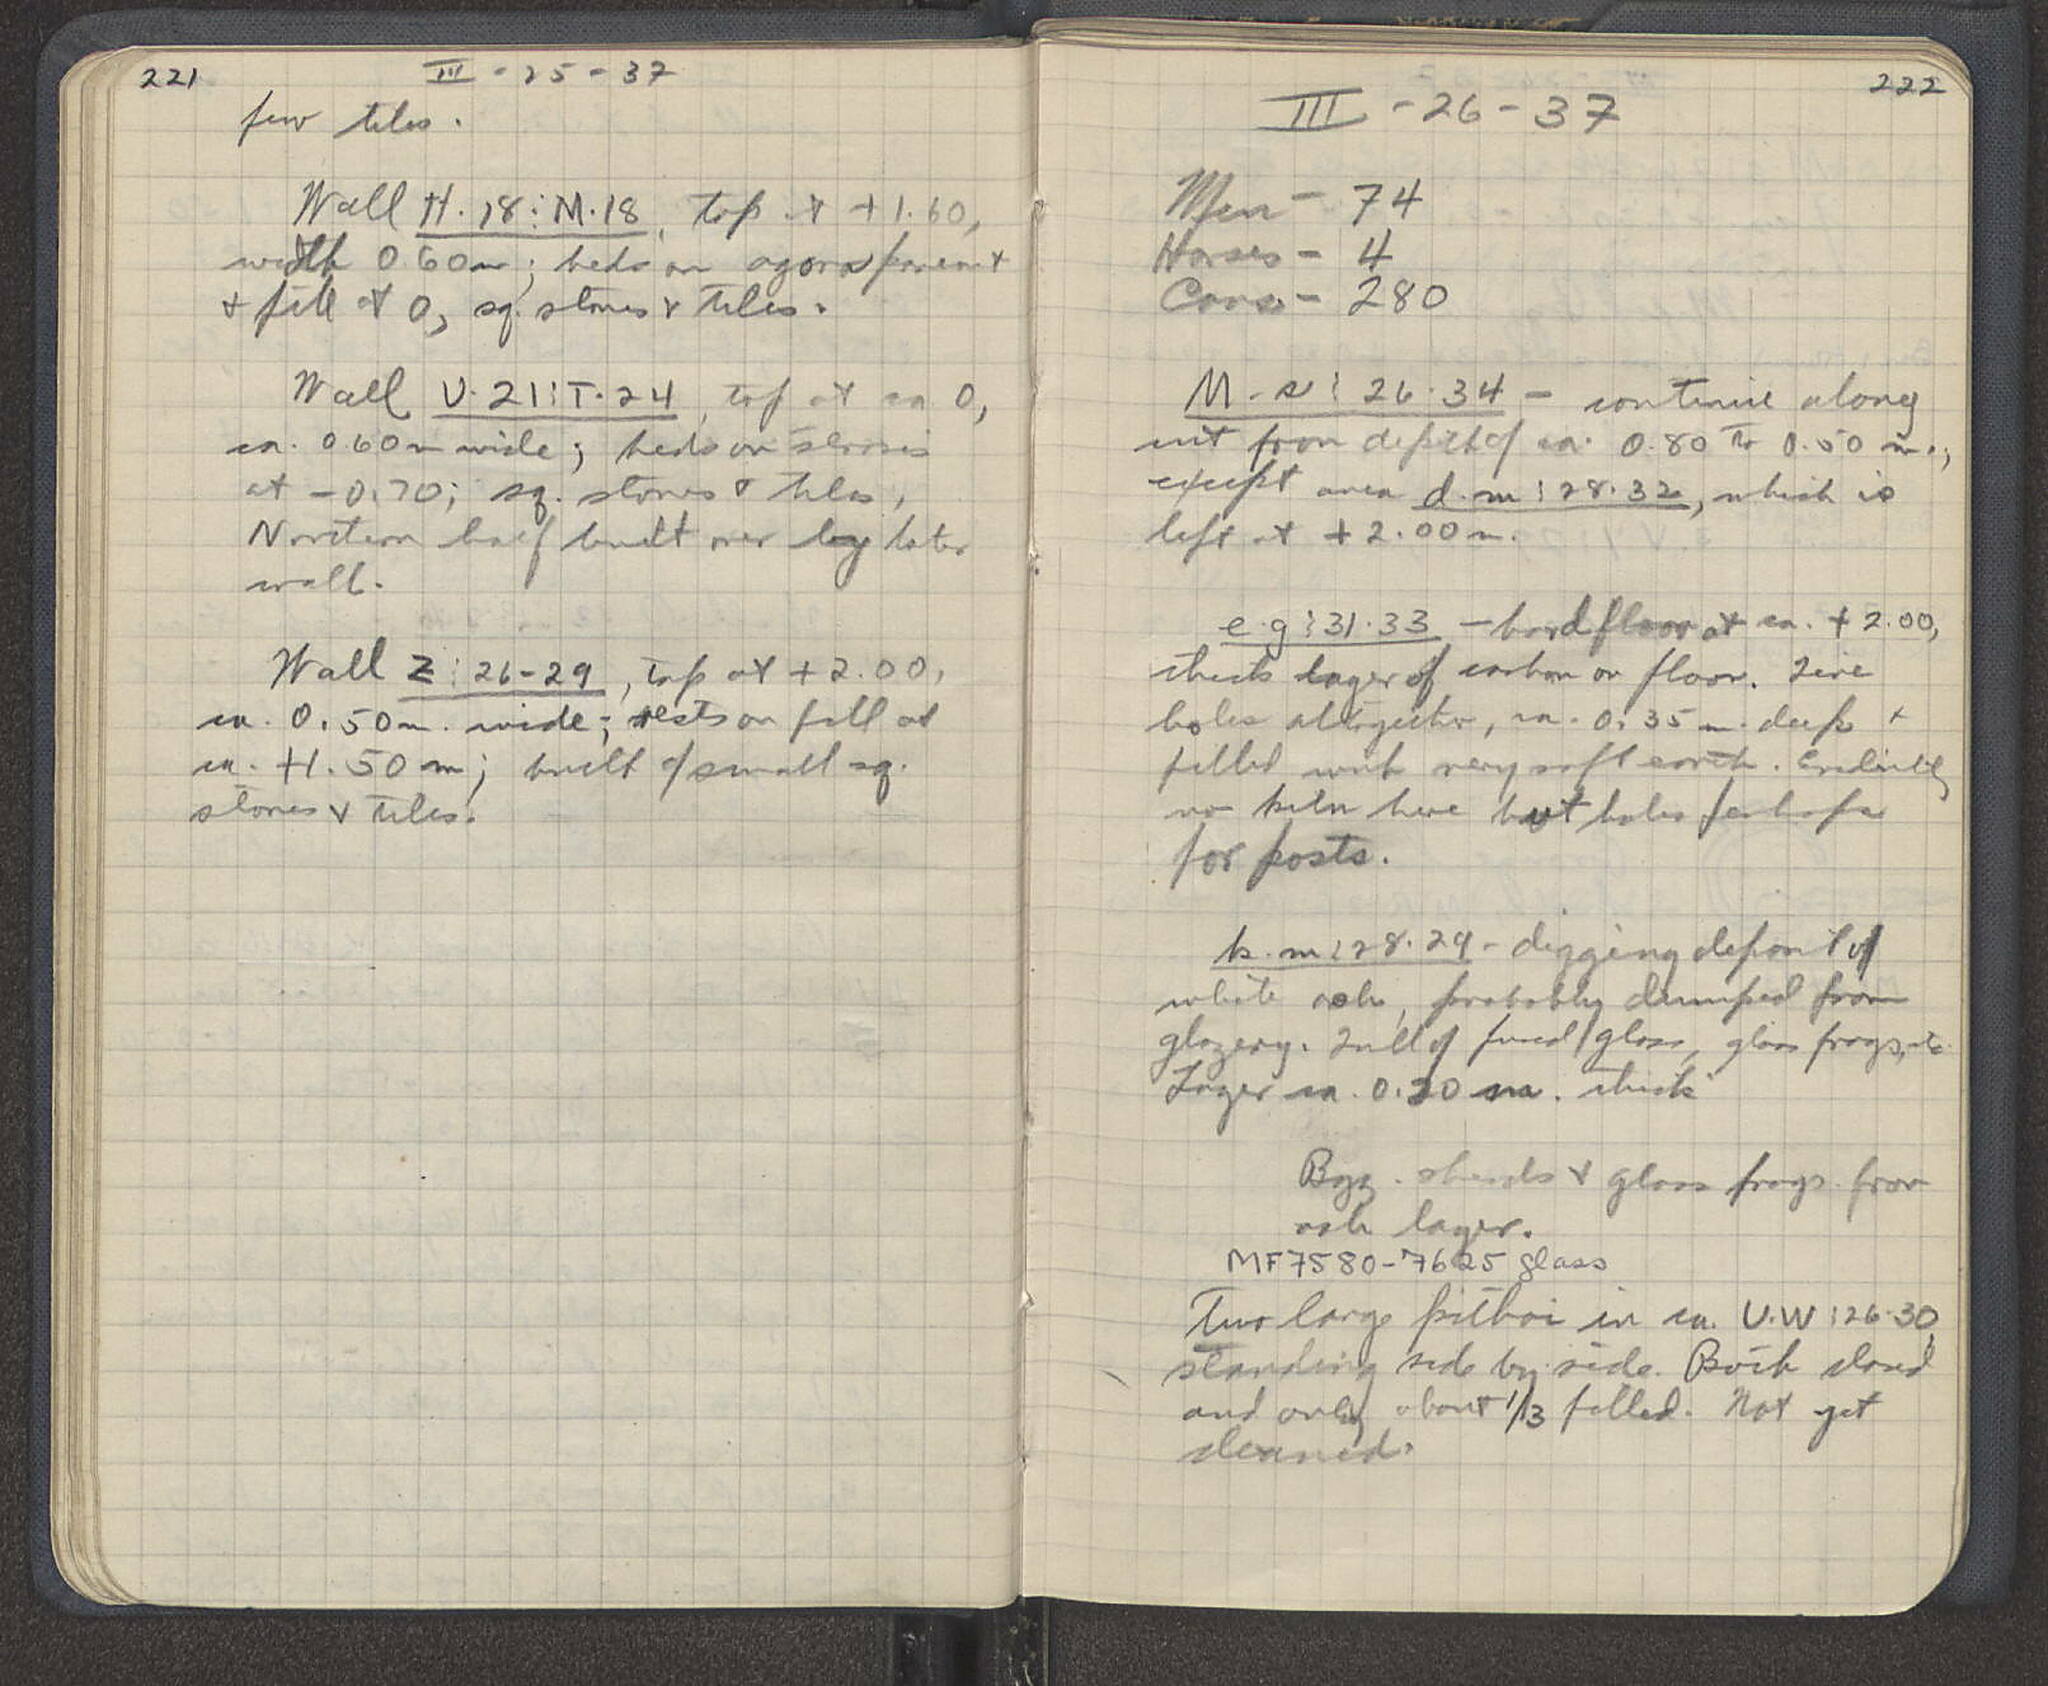 221
III - 25 - 37
few tiles.
Wall H.18:M.18, top at +1.60,
width 0.60m; beds on agora pavement
+ fill at 0, sq. stones + tiles.
Wall U.21:T.24, top at ca 0,
ca. 0.60m wide; beds on
at -0.70; sq. stones + tiles,
Northern half built over by later
wall.
Wall Z:26-29, top at +2.00,
ca. 0.50m. wide; rests on fill at
ca. +1.50m; built of small sq.
stones + tiles.
222
III - 26 - 37
Men - 74
Horses - 4
Cars - 280
M-s:26.34 - continue along
cut from depth of ca. 0.80 to 0.50 m.,
except area d.m:28.32, which is
left at +2.00m.
e.g:31.33 - hard floor at ca. +2.00,
thick layer of carbon on floor. Five
holes altogether, ca. 0.35 m. deep +
filled with very soft earth. Evidently
no kiln here but holes perhaps
for posts.
k.m:28.29 - digging deposit of
white ash, probably dumped from
glazery. Full of fused glass, glass frags, etc.
Layer ca. 0.20 m. thick
Byz. sherds + glass frags. from
ash layer.
MF7580-7625 glass
Two large pithoi in ca. U.W:26-30,
standing side by side. Both closed
and only about 1/3 filled. Not yet
cleaned.